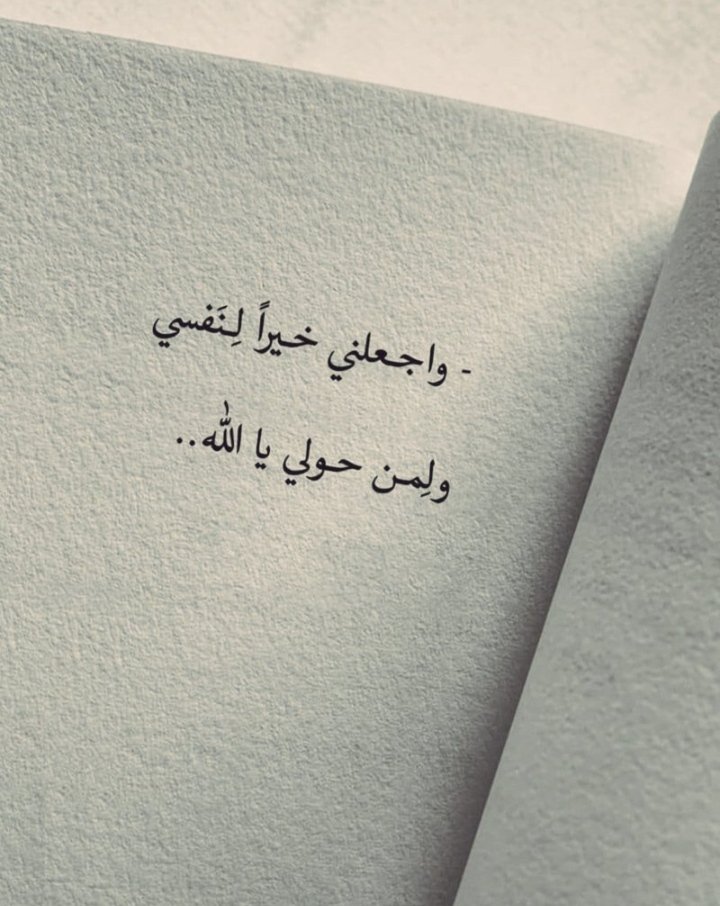 - واجعلني خيراً لِنَفسي
ولِمن حولي يا الله..